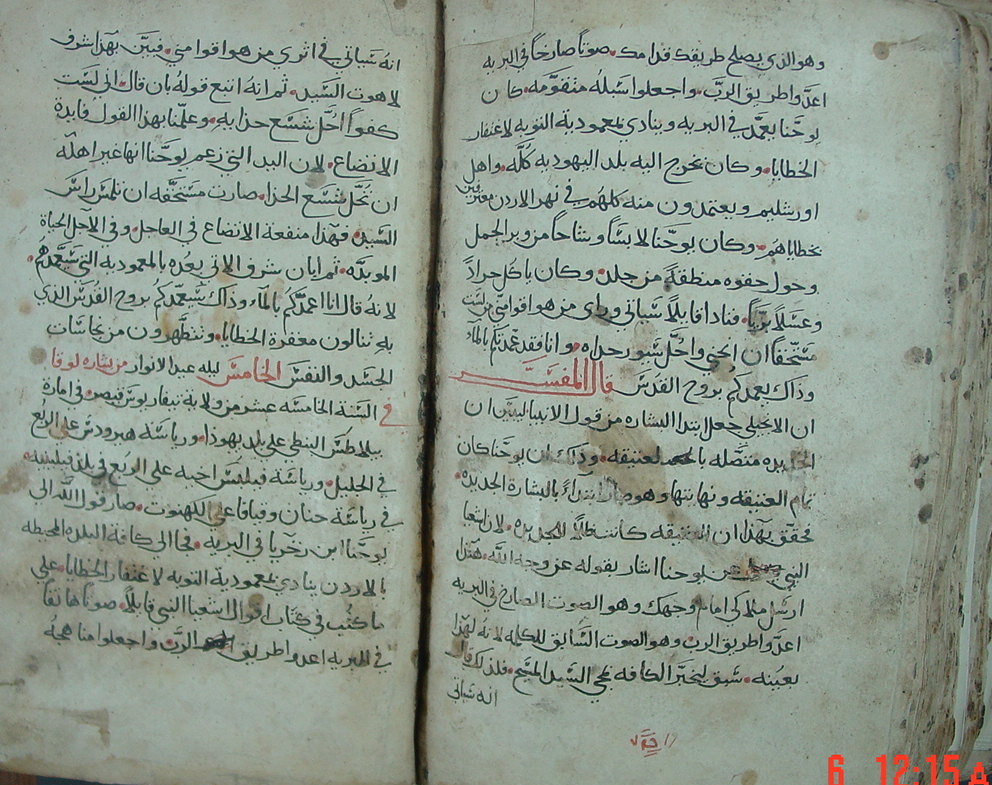 وهو الذي يصلح طريقك قدامك صوتاً صارخاً في البريه
اعدوا طريق الرب واجعلوا سبله متقومه كان
يوحنا يعمد في البريه وينادي بمعمودية التوبه لاغتفار
الخطايا وكان تخرج اليه بلد اليهوديه كله واهل
اورشليم ويعتمدون منه كلهم في نهر الاردن معترفين
بخطاياهم وكان يوحنا لابساً وشاحاً من وبر الجمل
وحول حقوه منطقه من جلد وكان ياكل جراداً
وعسلاً برياً فنادا قايلاً سياتي وراي من هو اقوا مني من لست
مستحقاً ان انحني واحل سيور حذاه وانا فقد عمدتكم بالماء
وذاك يعمدكم بروح القدس قال المفسر
ان الانجيلي جعل ابتدا البشاره من قول الانبيا ليبين ان
الجديده متصله بالعتيقه وذلك ان يوحنا كان
تمام العتيقه ونهايتها وهو صار ابتداءً بالبشارة الجديده
محقق بهذا ان العتيقه كانت ظلاً للجديده لان اشعيا
النبي عن يوحنا اشار بقوله عز وجه الله هنذا
ارسل ملاكي امام وجهك وهو الصوت الصارخ في البريه
اعدوا طريق الرب وهو الصوت السابق للكلمه لانه لهذا
بعينه سبق ليخبر الكافه بمجي السيد المسيح فلذلك قال
انه سياتي
انه سياتي في اثري من هو اقوا مني فبين بهذا شرف
لاهوت السيد ثم انه اتبع قوله بان قال اني لست
كفواً احل شسع حذايه وعلمنا بهذا القول فايدة
الاتضاع لان اليد التي زعم يوحنا انها غير اهله
ان تحل شسع الحذا صارت مستحقه ان تلمس راس
السيد فهذا منفعة الاتضاع في العاجل وفي الاجل الحياة
الموبده ثم ابان شرف الاتي بعده بالمعموديه التي سيعمدهم
لانه قال انا اعمدكم بالماء وذاك سيعمدكم بروح القدس الذي
به تنالون مغفرة الخطايا وتتطهرون من نجاسات
الجسد والنفس الخامس ليله عيد الانوار من بشاره لوقا
في السنة الخامسه عشر من ولاية تيفاريوس قيصر في امارة
بيلاطس النبطي على بلد يهوذا ورياسة هيرودس على الربع
في الجليل ورياسة فيلبس اخيه على الربع في بلد
في رياسة حنان وقيافا على الكهنوت صار قول الله الى
يوحنا ابن زخريا في البريه فجا الى كافة البلده المحيطه
بالاردن ينادي بمعمودية التوبه لاغتفار الخطايا على
ما كتب في كتاب اقوال اشعيا النبي قايلاً صوتاً هاتفاً
في البريه اعدوا طريق الرب واجعلوا مناهجه